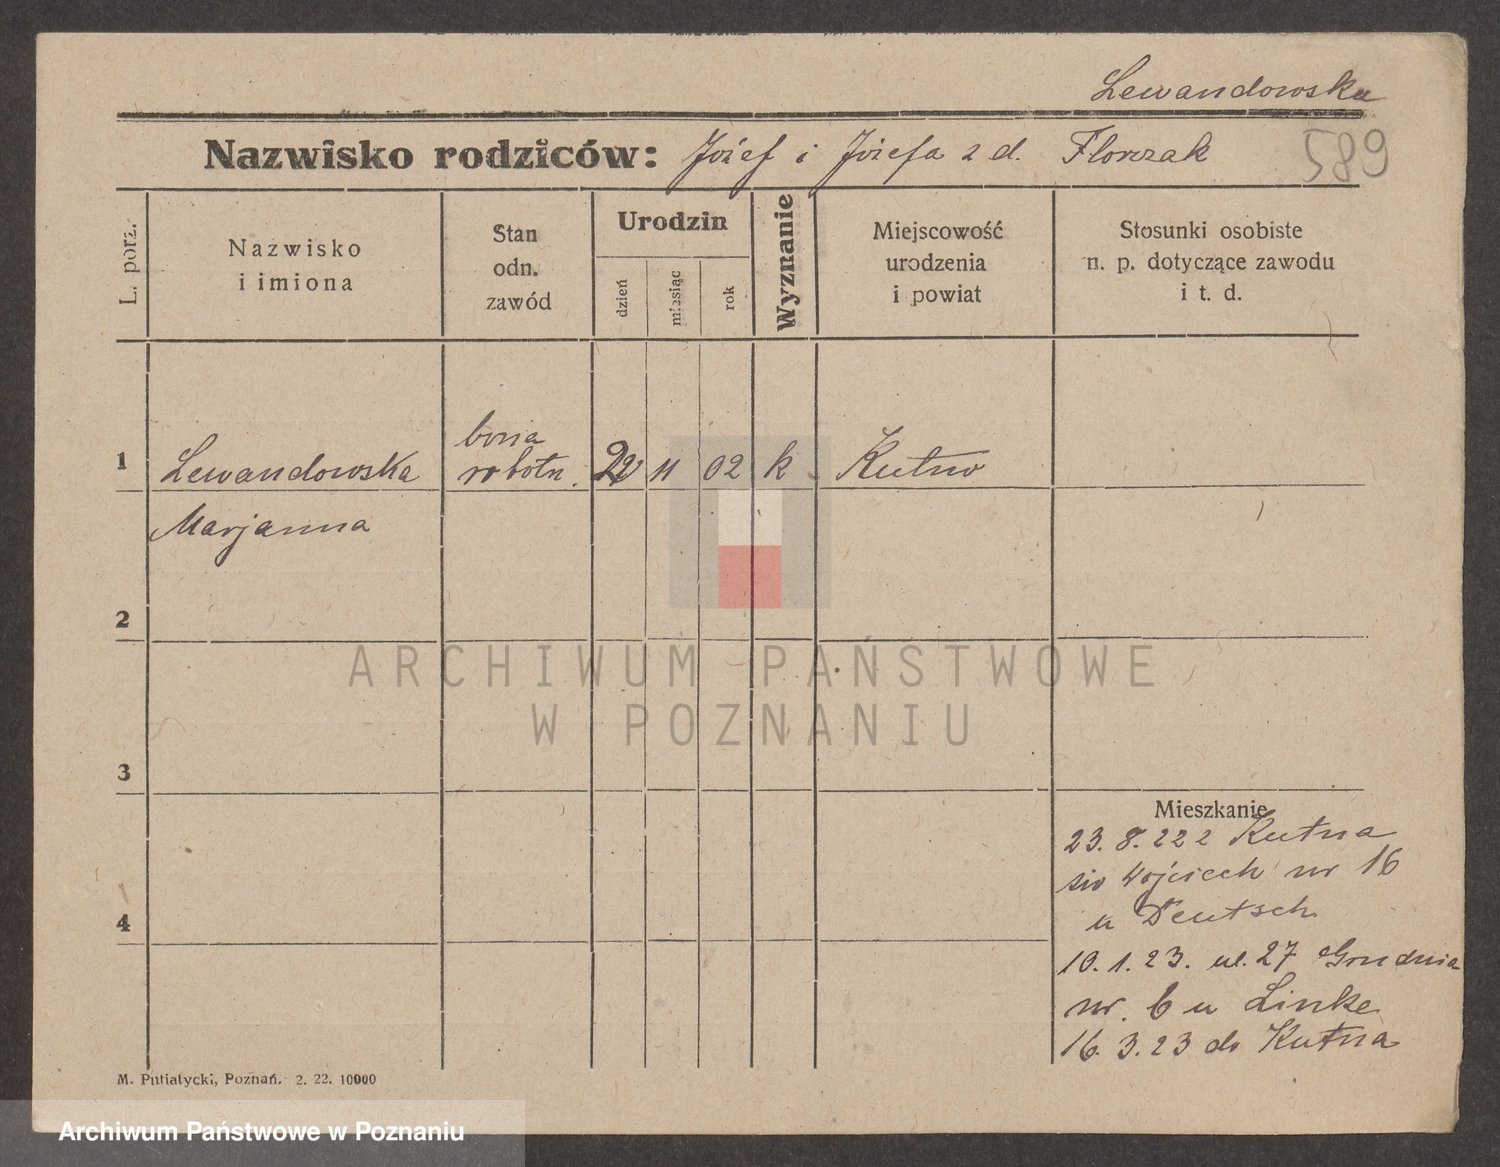 Lewandowska
Nazwisko rodziców: Józef i Józefa z d. Florczak
589
L. porz.
Nazwisko
i imiona
Stan
odn.
zawód
Urodzin
dzień
miesiąc
rok
Wyznanie
Miejscowość
urodzenia
i powiat
Stosunki osobiste
n. p. dotyczące zawodu
i t. d.
1
Lewandowska
Marjanna
bona
robotn.
22
11
02
k
Kutno
2
3
4
Mieszkanie
23. 8. 222 Kutna
św Wojciech nr 16
u Deutsch
10. 1. 23. ul. 27 Grudnia
nr. 6 u Linke
16. 3. 23 do Kutna
M. Putiatycki, Poznań. 2. 22. 10000
ARCHIWUM PAŃSTWOWE
W POZNANIU
Archiwum Państwowe w Poznaniu